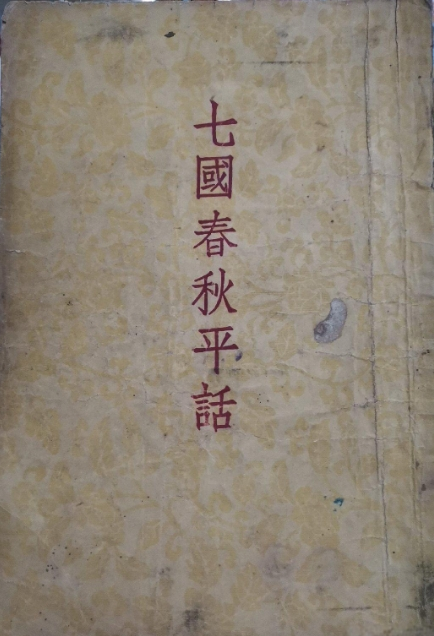 七國春秋平話